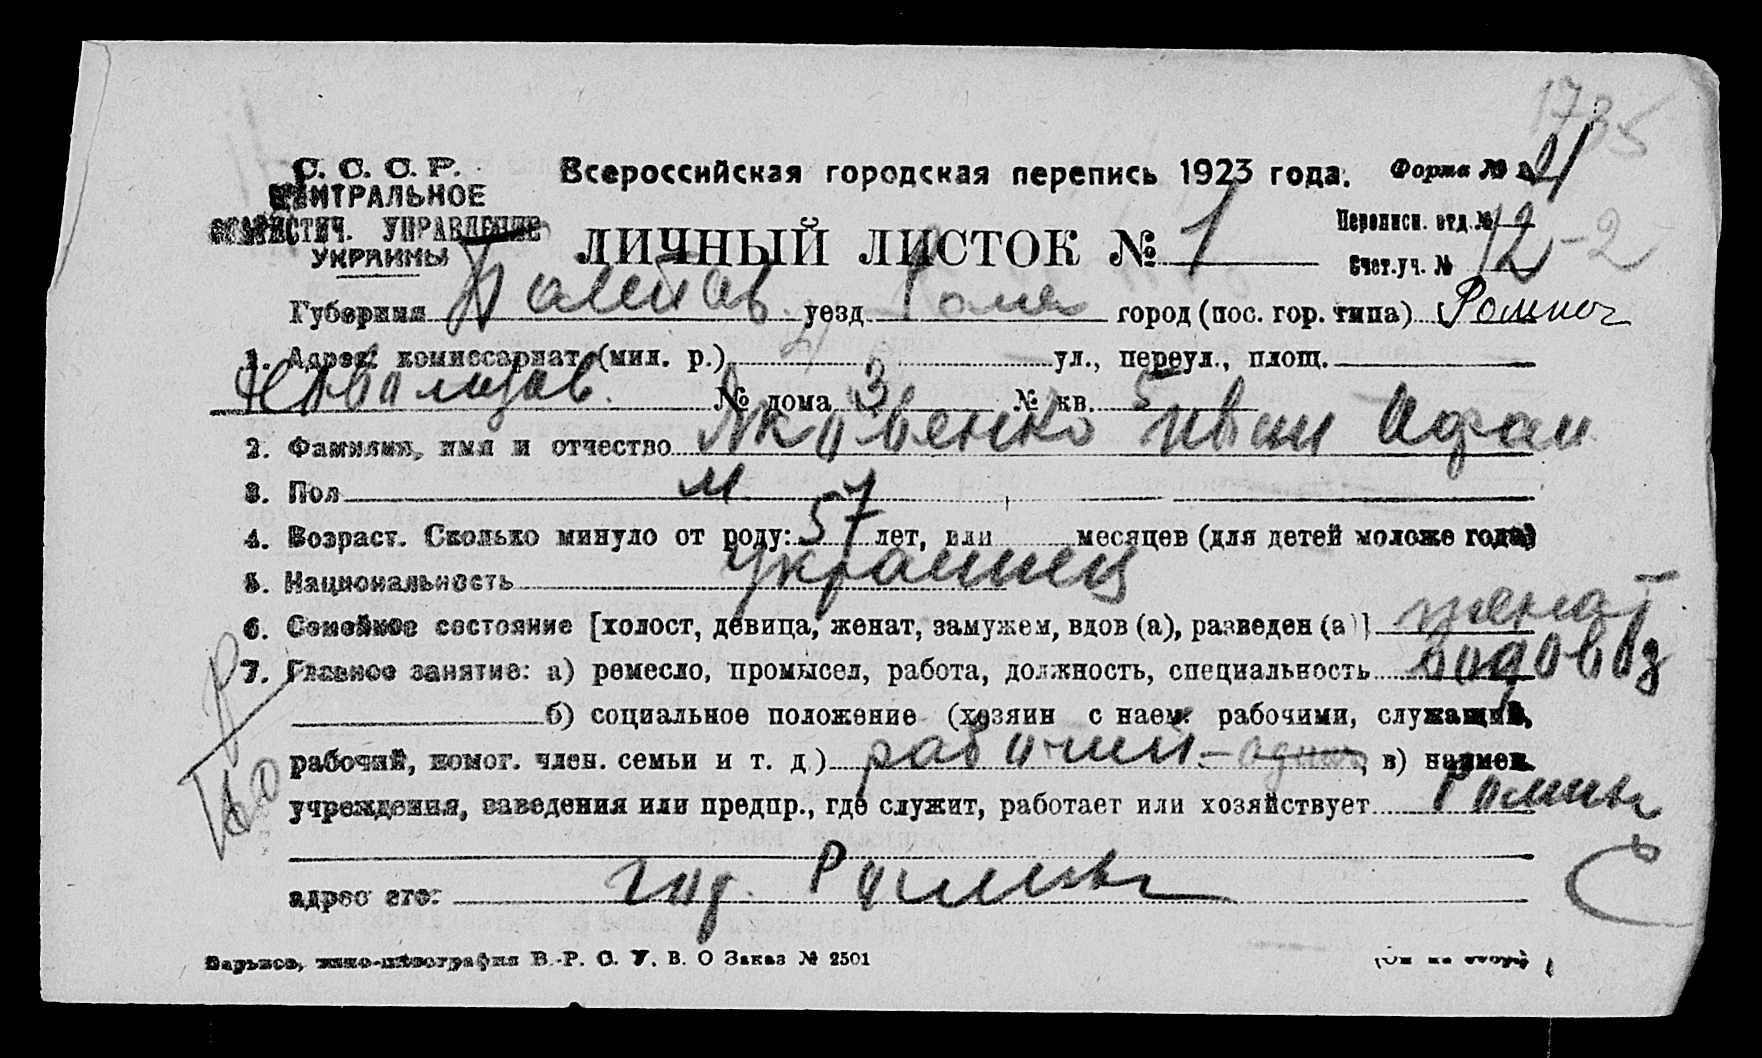 1735
С. С. С. Р. Всероссийская городская перепись 1923 года. Форма №
ЦЕНТРАЛЬНОЕ
СТАТИСТИЧ. УПРАВЛЕНИЕ ЛИЧНЫЙ ЛИСТОК № 1 Переписн. отд. №
УКРАИНЫ Счет. уч. № 12-2
Губерния Полтав. уезд Ромен город (пос. гор. типа) Ромны
1. Адрес: комиссариат (мил. р.) ул., переул., площ.
№ дома 3 № кв. 5
2. Фамилия, имя и отчество Яковенко Иван Афан
3. Пол М
4. Возраст. Сколько минуло от роду: 57 лет, или месяцев (для детей моложе года)
5. Национальность украинец
6. Семейное состояние [холост, девица, женат, замужем, вдов (а), разведен (а)] женат
7. Главное занятие: а) ремесло, промысел, работа, должность, специальность водовоз
б) социальное положение (хозяин с наем. рабочими, служащий,
рабочий, помог. член. семьи и т. д.) рабочий-один в) наимен.
учреждения, заведения или предпр., где служит, работает или хозяйствует Ромны
адрес его: гор. Ромны
Харьков, типо-литография В.-Р. С. У. В. О Заказ № 2501 (См на обор)